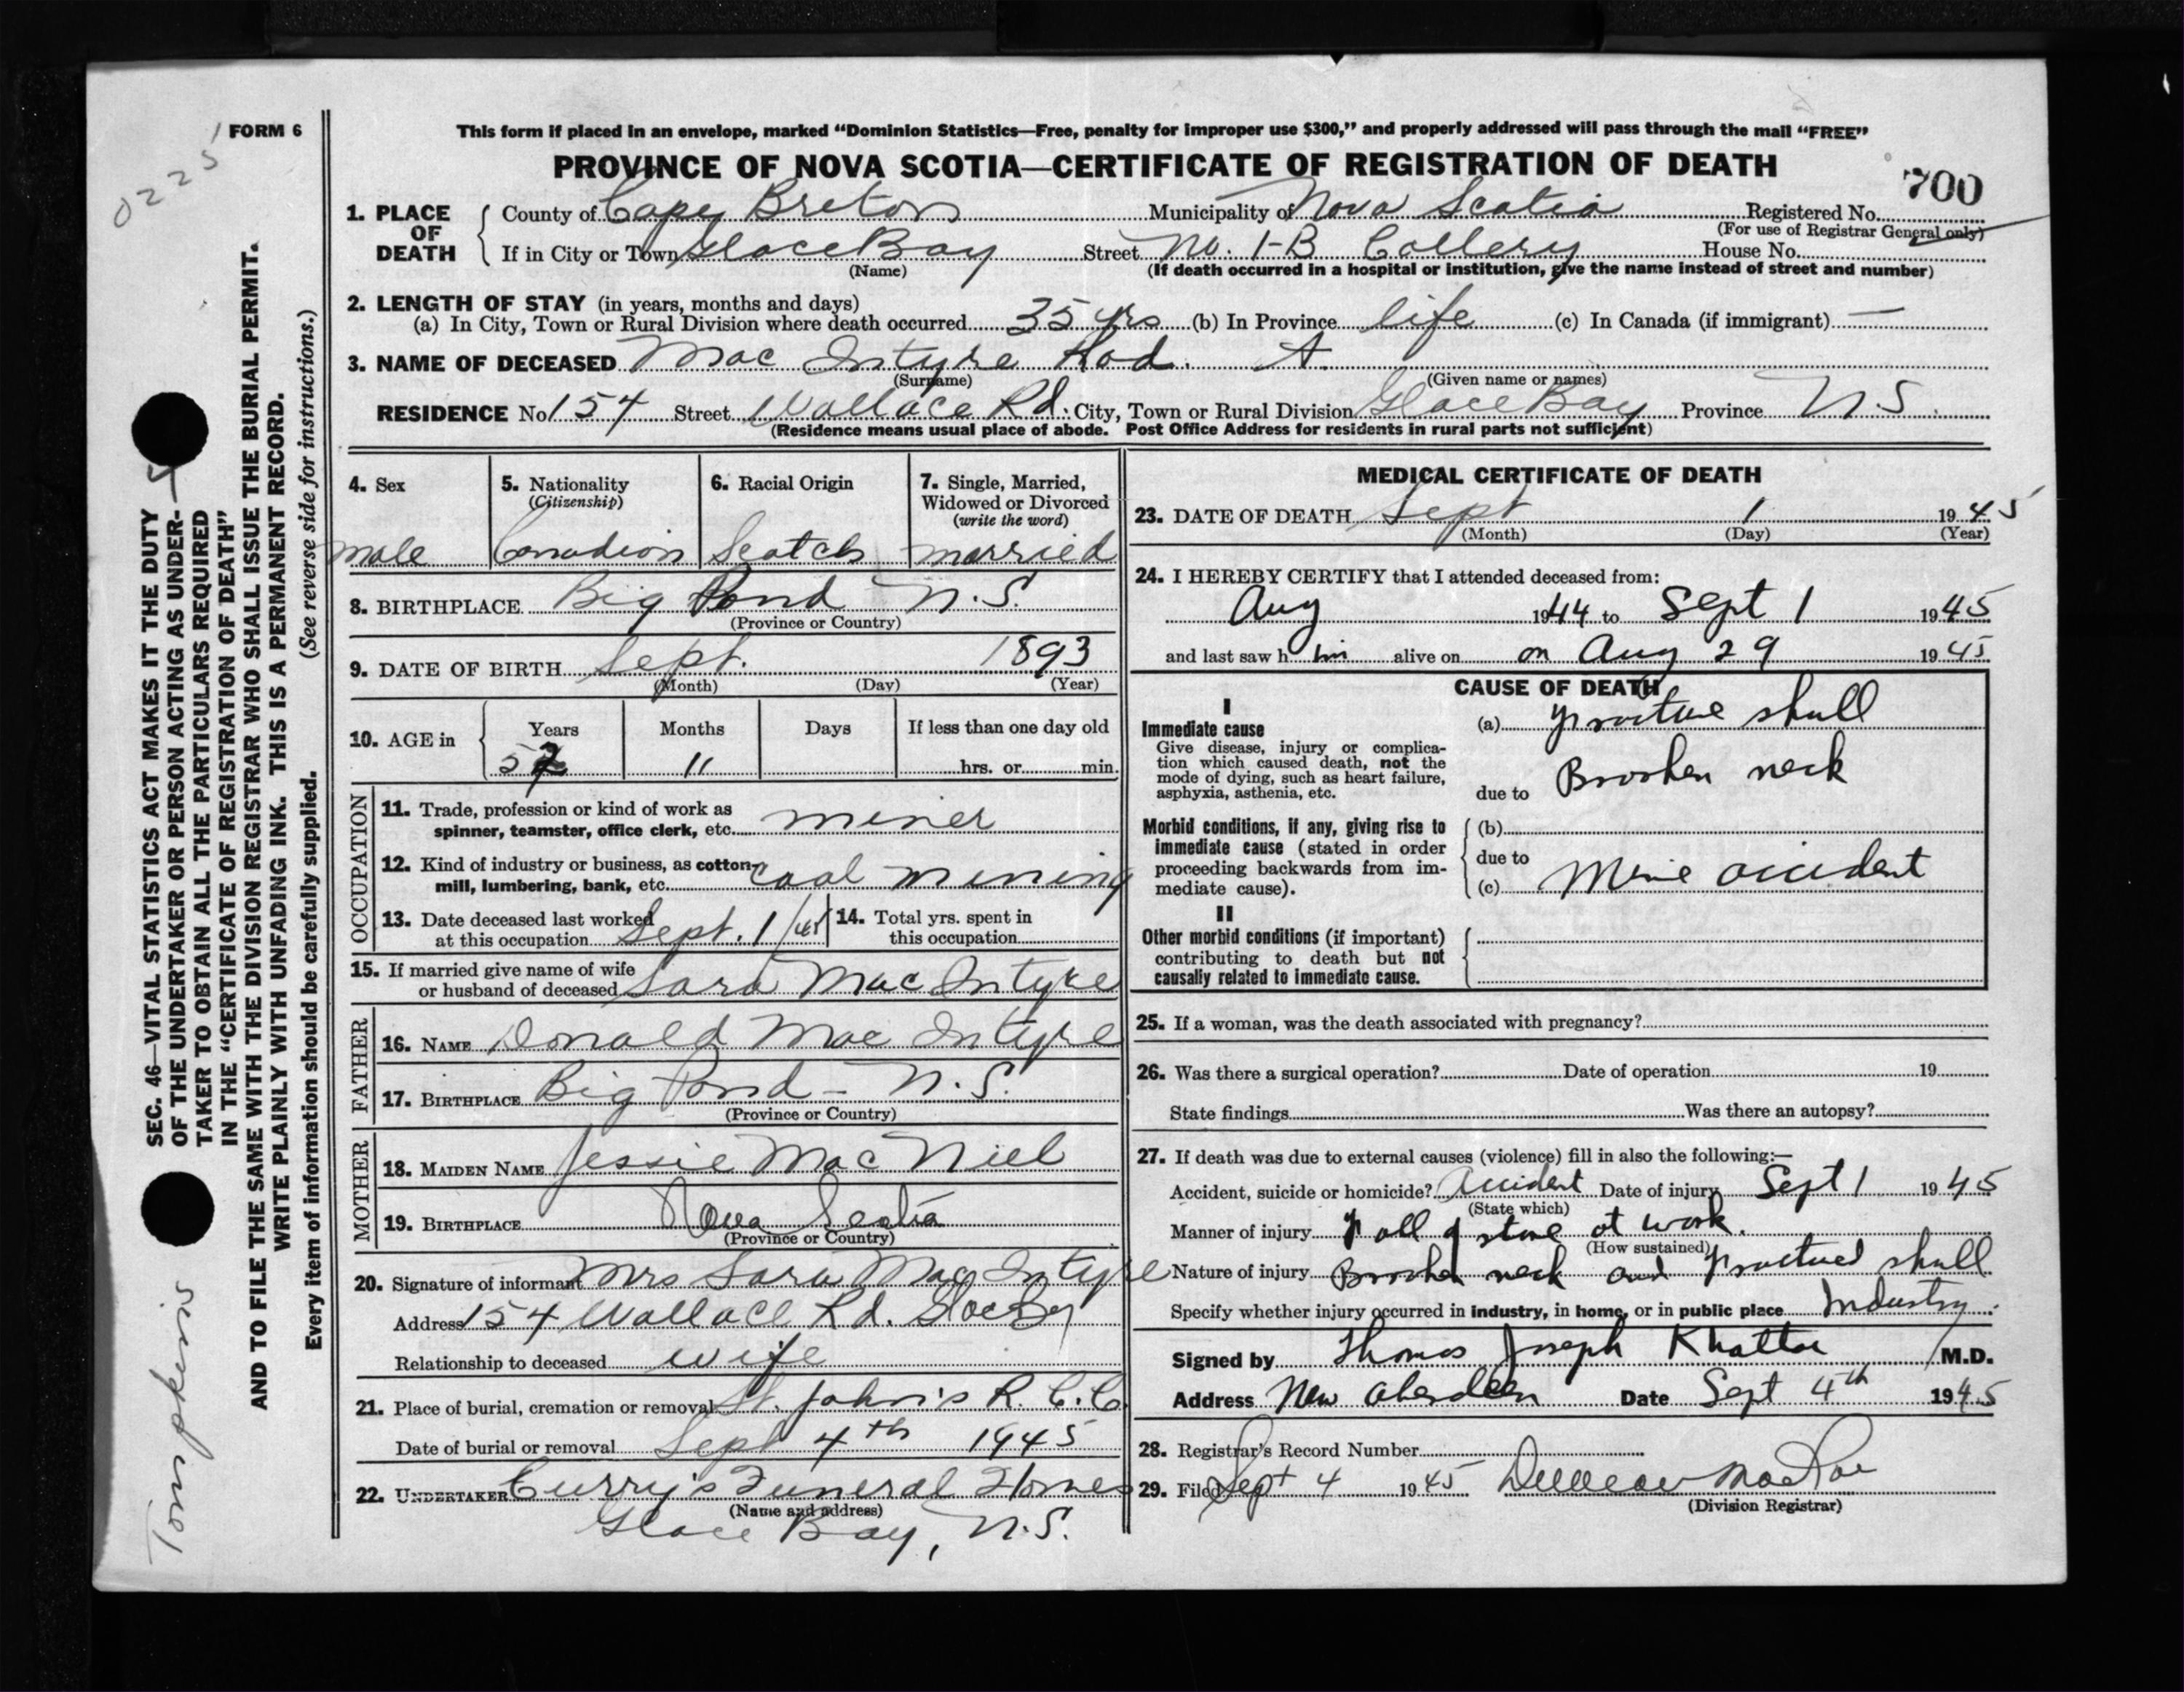 0225
FORM 6
This form if placed in an envelope, marked “Dominion Statistics—Free, penalty for improper use $300,” and properly addressed will pass through the mail “FREE”
PROVINCE OF NOVA SCOTIA—CERTIFICATE OF REGISTRATION OF DEATH
700
1. PLACE OF DEATH
County of Cape Breton Municipality of Nova Scotia Registered No.
(For use of Registrar General only)
If in City or Town Glace Bay Street No. 1-B Collery House No.
(Name)
(If death occurred in a hospital or institution, give the name instead of street and number)
2. LENGTH OF STAY (in years, months and days)
(a) In City, Town or Rural Division where death occurred 35 yrs (b) In Province life (c) In Canada (if immigrant) —
3. NAME OF DECEASED Mac Intyre Rod. A.
(Surname) (Given name or names)
RESIDENCE No 154 Street Wallace Rd. City, Town or Rural Division Glace Bay Province N.S.
(Residence means usual place of abode. Post Office Address for residents in rural parts not sufficient)
4. Sex
male
5. Nationality
(Citizenship)
Canadian
6. Racial Origin
Scotch
7. Single, Married, Widowed or Divorced
(write the word)
married
8. BIRTHPLACE Big Pond N.S.
(Province or Country)
9. DATE OF BIRTH Sept. 1893
(Month) (Day) (Year)
10. AGE in
Years Months Days If less than one day old
52 11 hrs. or min.
OCCUPATION
11. Trade, profession or kind of work as
spinner, teamster, office clerk, etc. miner
12. Kind of industry or business, as cotton-
mill, lumbering, bank, etc. coal mining
13. Date deceased last worked
at this occupation Sept. 1/45
14. Total yrs. spent in
this occupation
15. If married give name of wife
or husband of deceased Sara Mac Intyre
FATHER
16. NAME Donald Mac Intyre
17. BIRTHPLACE Big Pond - N.S.
(Province or Country)
MOTHER
18. MAIDEN NAME Jessie Mac Niel
19. BIRTHPLACE Nova Scotia
(Province or Country)
20. Signature of informant Mrs Sara Mac Intyre
Address 154 Wallace Rd. Glace Bay
Relationship to deceased wife
21. Place of burial, cremation or removal St. John's R. C. C.
Date of burial or removal Sept 4th 1945
22. UNDERTAKER Curry's Funeral Homes
(Name and address)
Glace Bay, N.S.
MEDICAL CERTIFICATE OF DEATH
23. DATE OF DEATH Sept 1 1945
(Month) (Day) (Year)
24. I HEREBY CERTIFY that I attended deceased from:
Aug 1944 to Sept 1 1945
and last saw h im alive on on Aug 29 1945
CAUSE OF DEATH
I
Immediate cause
Give disease, injury or complica-
tion which caused death, not the
mode of dying, such as heart failure,
asphyxia, asthenia, etc.
(a) Fracture skull
due to Broken neck
Morbid conditions, if any, giving rise to
immediate cause (stated in order
proceeding backwards from im-
mediate cause).
(b)
due to
(c) Mine accident
II
Other morbid conditions (if important)
contributing to death but not
causally related to immediate cause.
25. If a woman, was the death associated with pregnancy?
26. Was there a surgical operation? Date of operation 19
State findings Was there an autopsy?
27. If death was due to external causes (violence) fill in also the following:—
Accident, suicide or homicide? Accident Date of injury Sept 1 1945
(State which)
Manner of injury Fall of stone at work.
(How sustained)
Nature of injury Broken neck and fractured skull
Specify whether injury occurred in industry, in home, or in public place Industry.
Signed by Thomas Joseph Khattar M.D.
Address New Aberdeen Date Sept 4th 1945
28. Registrar's Record Number
29. Filed Sept 4 1945 Duncan MacRae
(Division Registrar)
SEC. 46—VITAL STATISTICS ACT MAKES IT THE DUTY
OF THE UNDERTAKER OR PERSON ACTING AS UNDER-
TAKER TO OBTAIN ALL THE PARTICULARS REQUIRED
IN THE “CERTIFICATE OF REGISTRATION OF DEATH”
AND TO FILE THE SAME WITH THE DIVISION REGISTRAR WHO SHALL ISSUE THE BURIAL PERMIT.
WRITE PLAINLY WITH UNFADING INK. THIS IS A PERMANENT RECORD.
Every item of information should be carefully supplied. (See reverse side for instructions.)
Tompkins